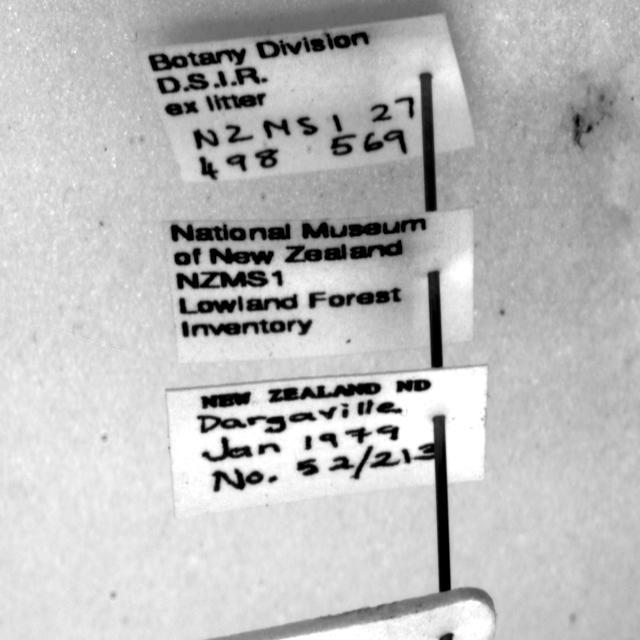 Botany Division
D.S.I.R.
ex litter
NZMS 1 27
498 569
National Museum
of New Zealand
NZMS1
Lowland Forest
Inventory
NEW ZEALAND ND
Dargaville
Jan 1979
No. 52/213